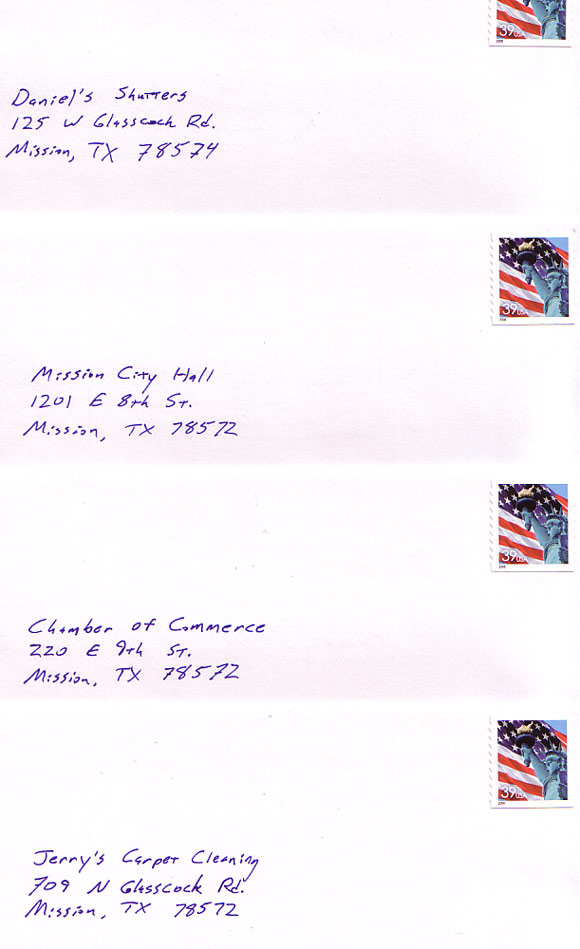 39 USA
Daniel's Shutters
125 W Glasscock Rd.
Mission, TX 78574
39 USA
Mission City Hall
1201 E 8th St.
Mission, TX 78572
39 USA
Chamber of Commerce
220 E 9th St.
Mission, TX 78572
39 USA
Jerry's Carpet Cleaning
709 N Glasscock Rd.
Mission, TX 78572